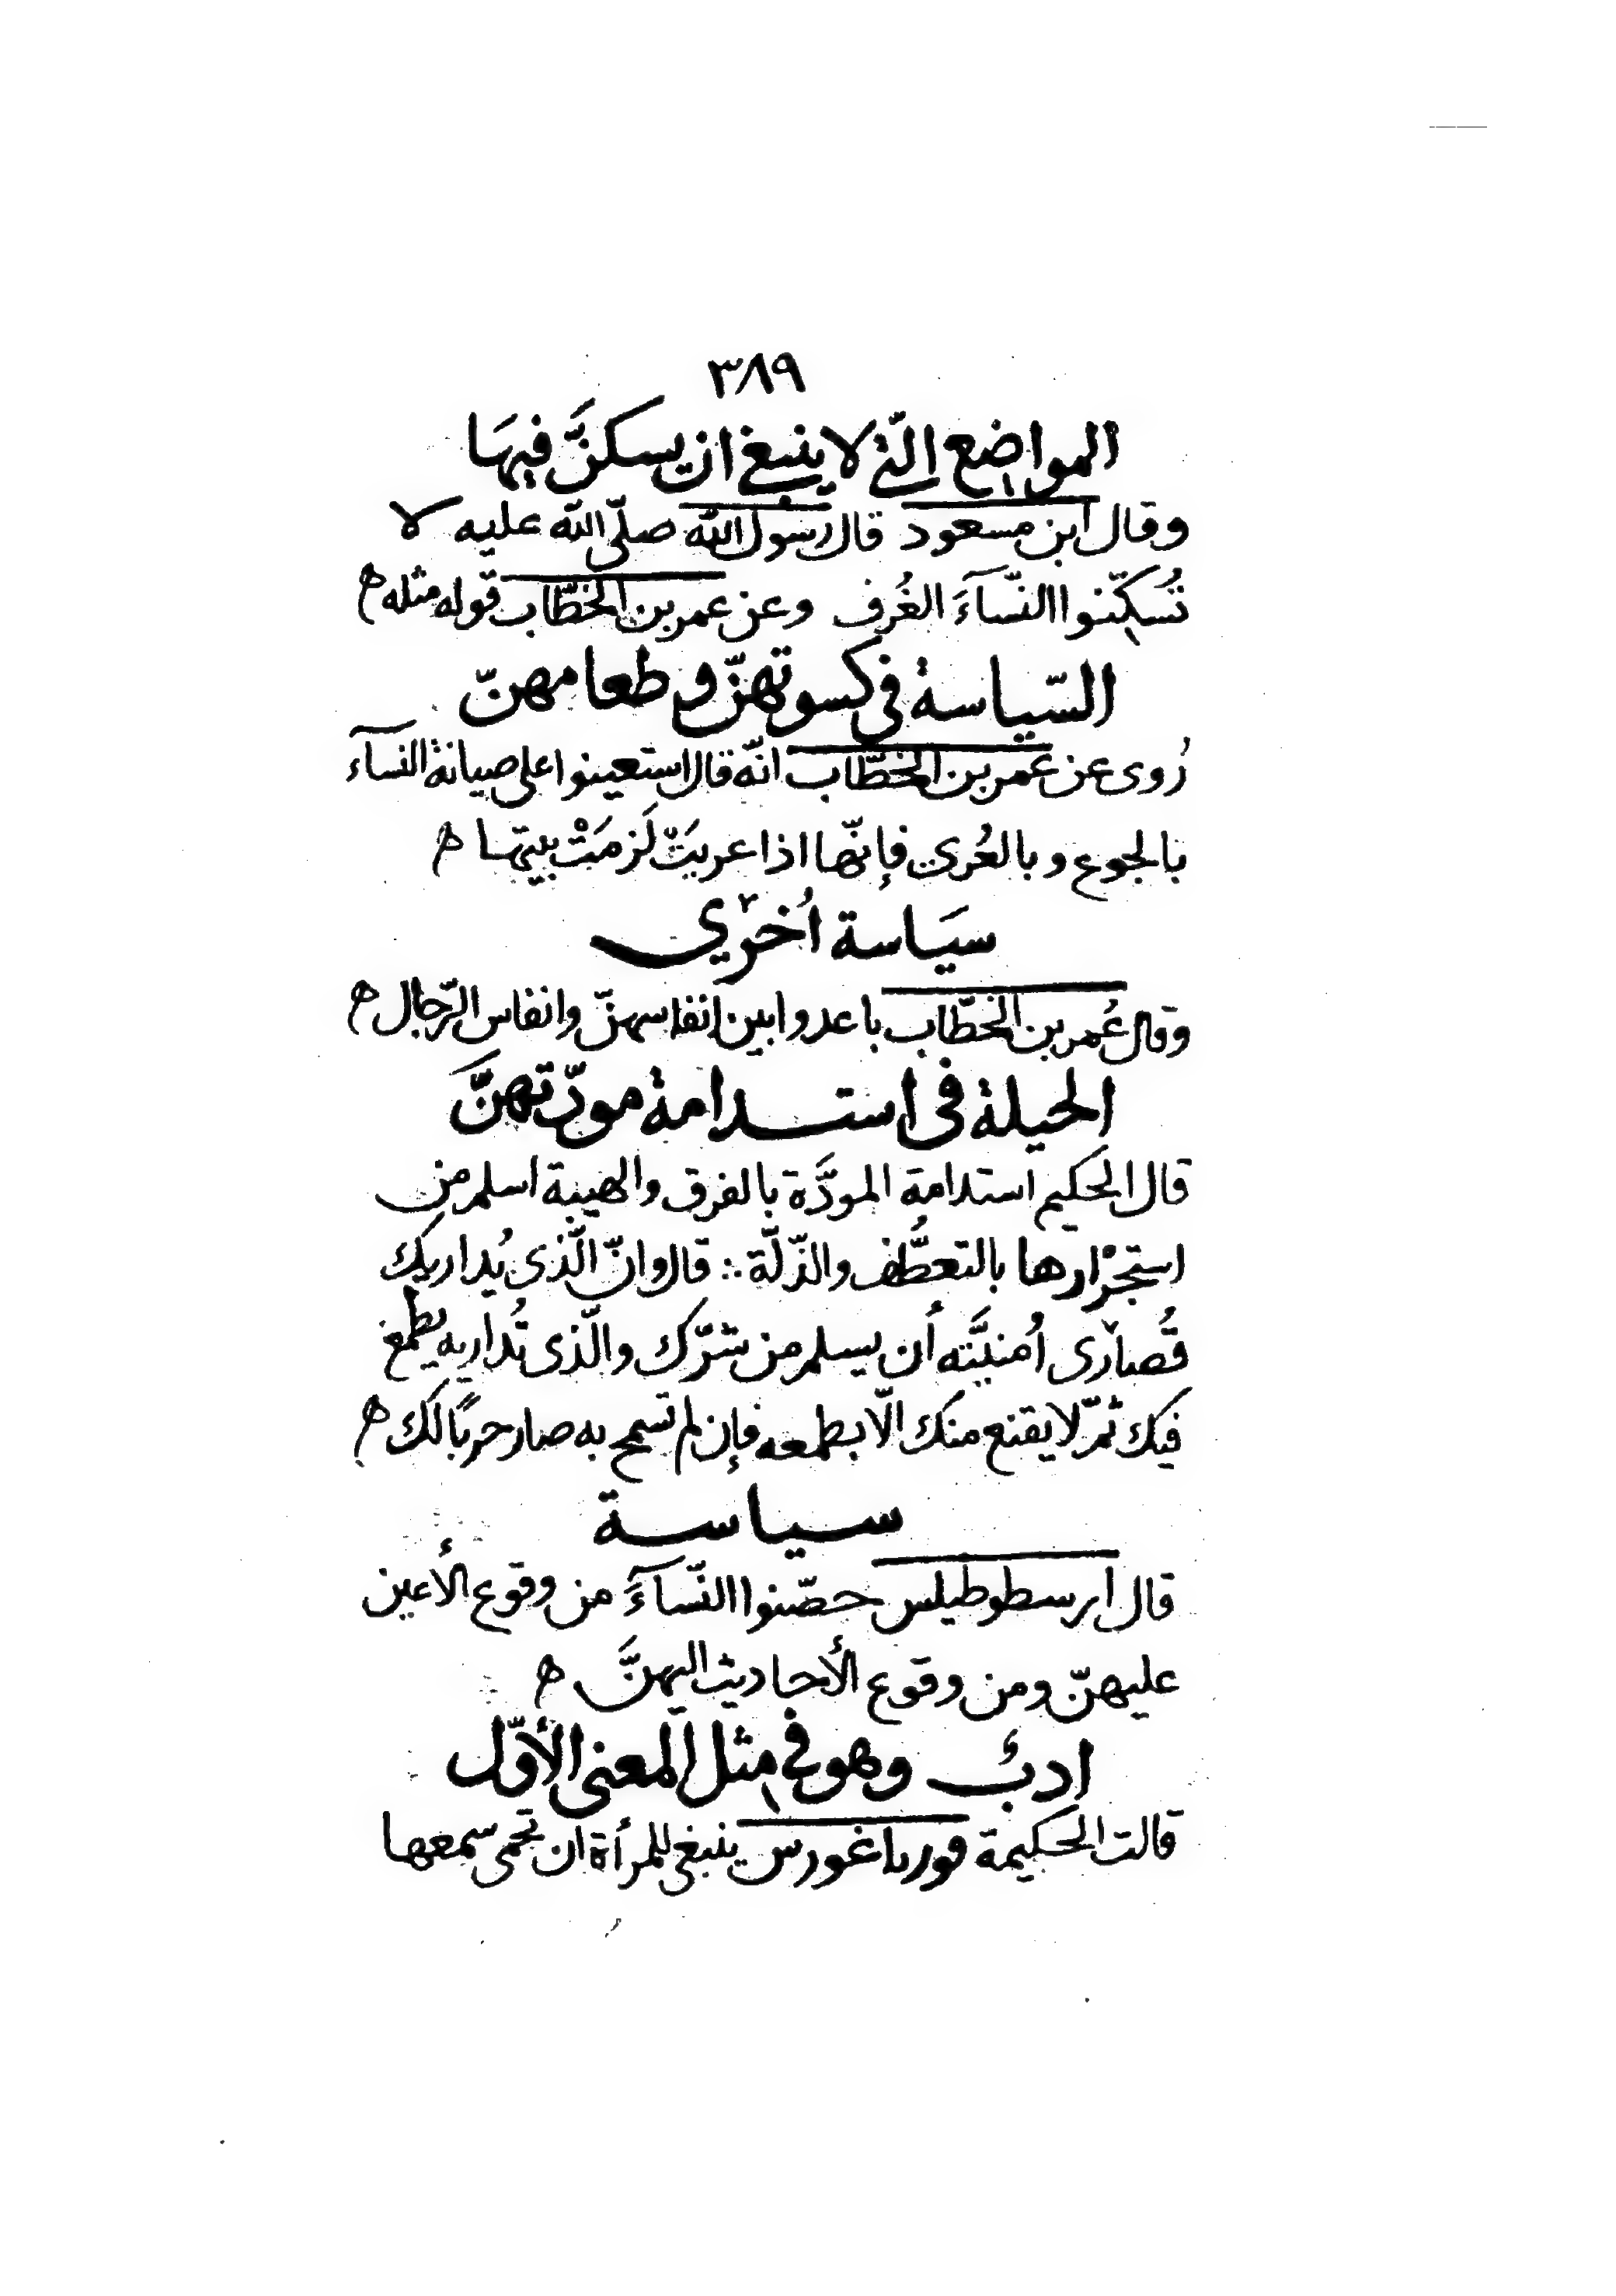 ٣٨٩
المواضع الّتي لا ينبغي ان يسكنَّ فيهَا
وقال ابن مسعود قال رسول الله صلّى الله عليه لا
تُسَكِّنوا النّسآءَ الغُرف وعن عمر بن الخطّاب قوله مثله ه
السّياسة في كسوتهنّ وطعامهنّ
رُوى عن عمر بن الخطّاب انّه قال استعينوا على صيانة النسآء
بالجوع وبالعُرى فإنّها اذا عريَتْ لَزمَتْ بيتها ه
سيَاسة اُخرى
وقال عُمر بن الخطّاب باعدوا بين انفاسهنّ وانفاس الرّجال ه
الحيلة في استدامة مودّتهنَّ
قال الحكيم استدامة المودَّة بالفرق والهيبة اسلم من
استجْرارها بالتعطُّف والذّلّة ∴ قال وانّ الّذي يُداريك
قُصارى اُمنيَّته أن يسلم من شرّك والّذى تُداريه يطمع
فيك ثمّ لا يقنع منك الّا بطمعه فإن لم تسمح به صار حربًا لك ه
سياسة
قال ارسطوطيلس حصّنوا النّسآءَ من وقوع الأعين
عليهنّ ومن وقوع الأحاديث اليهنَّ ه
ادبٌ وهو في مثل المعنى الأوّل
قالت الحكيمة فورباغورس ينبغي للمرأة ان تحمى سمعها